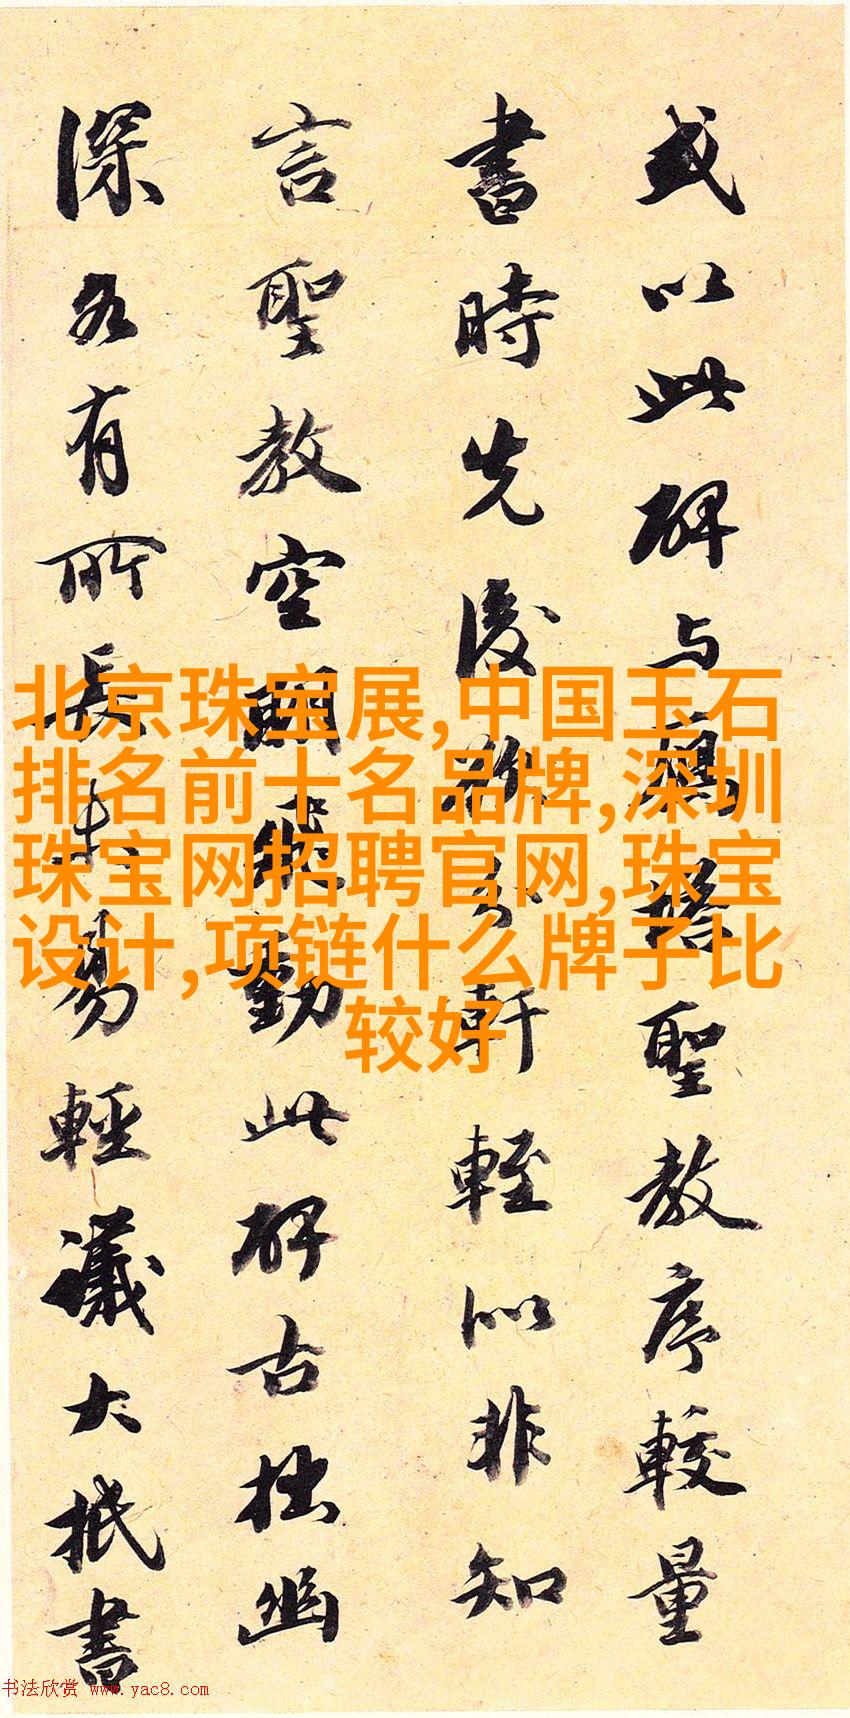 或以此碑与鴈塔聖教序較量
書時先後欲分軒輊似非知
言聖教空飛動此碑古拙幽
深各有所長未易輕議大抵書
北京珠宝展,中国玉石
排名前十名品牌,深圳
珠宝网招聘官网,珠宝
设计,项链什么牌子比
较好
书法欣赏 www.yac8.com